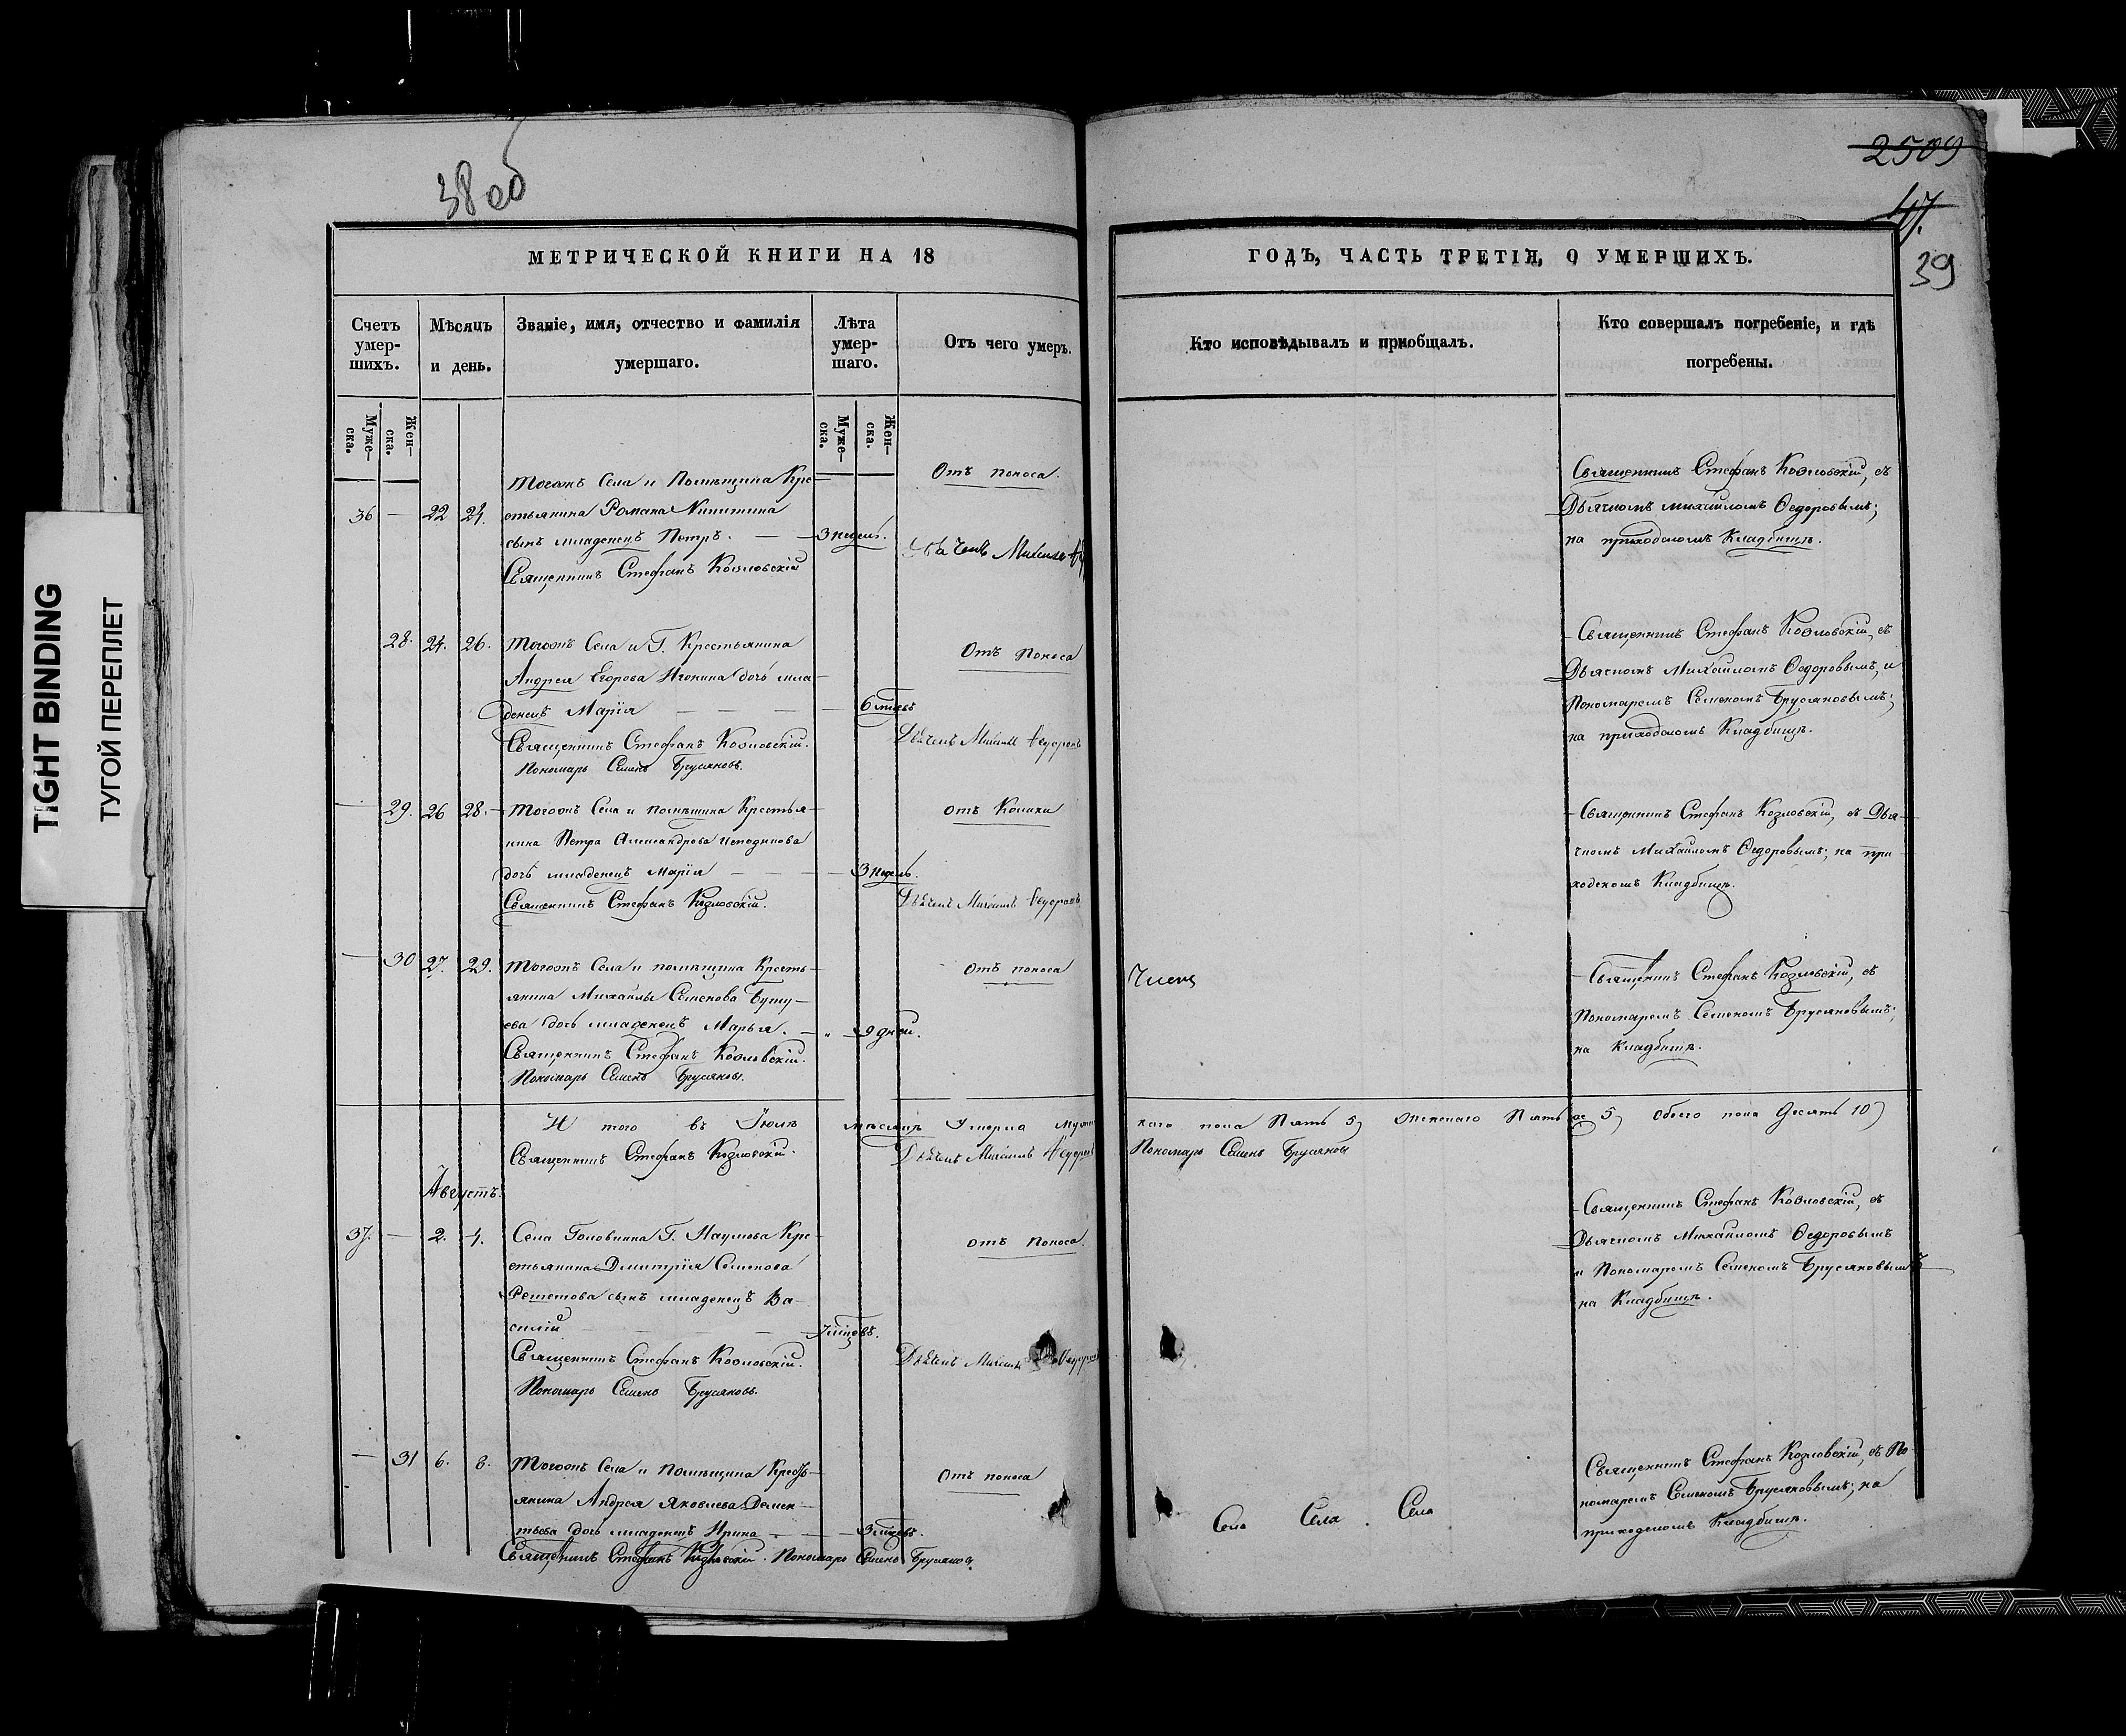 38 об
2509
47.
39
TIGHT BINDING
ТУГОЙ ПЕРЕПЛЕТ
МЕТРИЧЕСКОЙ КНИГИ НА 18
ГОДЪ, ЧАСТЬ ТРЕТІЯ, О УМЕРШИХЪ.
Счетъ умер-шихъ.
Мѣсяцъ и день.
Званіе, имя, отчество и фамилія умершаго.
Лѣта умер-шаго.
Отъ чего умеръ.
Кто исповѣдывалъ и пріобщалъ.
Кто совершалъ погребеніе, и гдѣ погребены.
Муже-ска.
Жен-ска.
Муже-ска.
Жен-ска.
Тогожъ Села и Помѣщика Кре-
36 — 22 24. стьянина Романа Никитина
сынъ младенецъ Петръ. — 3 недѣл.
Священникъ Стефанъ Козловскій
Отъ поноса.
Дьячекъ Михаилъ
Священникъ Стефанъ Козловскій, съ
Дьячкомъ Михаиломъ Ѳедоровымъ;
на приходскомъ Кладбищѣ.
28. 24. 26. Тогожъ Села и Г. Крестьянина
Андрея Егорова дочь мла-
денецъ Марія — — — 6 мцвъ
Священникъ Стефанъ Козловскій.
Пономарь Семенъ Брусяновъ.
Отъ поноса
Дьячекъ Михаилъ Ѳедоровъ
Священникъ Стефанъ Козловскій, съ
Дьячкомъ Михаиломъ Ѳедоровымъ, и
Пономаремъ Семеномъ Брусяновымъ;
на приходскомъ Кладбищѣ.
— 29. 26 28. Тогожъ Села и помѣщика Крестья-
нина Петра Александрова
дочь младенецъ Марія — — — 3 недѣль.
Священникъ Стефанъ Козловскій.
отъ Колики
Дьячекъ Михаилъ Ѳедоровъ
Священникъ Стефанъ Козловскій, съ Дья-
чкомъ Михаиломъ Ѳедоровымъ; на при-
ходскомъ Кладбищѣ.
— 30 27. 29. Тогожъ Села и помѣщика Кресть-
янина Михаилы Семенова
дочь младенецъ Марья. — 9 дней.
Священникъ Стефанъ Козловскій.
Пономарь Семенъ Брусяновъ.
отъ поноса
Священникъ Стефанъ Козловскій, съ
Пономаремъ Семеномъ Брусяновымъ;
на Кладбищѣ.
И того въ Іюлѣ мѣсяцѣ Умерло мужес
каго пола Пять 5, Женскаго Пять же 5, обоего пола Десять 10)
Священникъ Стефанъ Козловскій.
Дьячекъ Михаилъ Ѳедоровъ
Пономарь Семенъ Брусяновъ
Августъ.
37. — 2. 4. Села Головкина Г. Наумова Кре-
стьянина Дмитрія Семенова
Решетова сынъ младенецъ Ва-
силій — — — 7 мцовъ.
Священникъ Стефанъ Козловскій.
Пономарь Семенъ Брусяновъ.
отъ Поноса.
Дьячекъ Михаилъ Ѳедоровъ
Священникъ Стефанъ Козловскій, съ
Дьячкомъ Михаиломъ Ѳедоровымъ
и Пономаремъ Семеномъ Брусяновымъ
на Кладбищѣ.
— 31 6. 8. Тогожъ Села и Помѣщика Кресть-
янина Андрея Яковлева Демен-
тьева дочь младенецъ Ирина — — 3 мцовъ.
Священникъ Стефанъ Козловскій. Пономарь Семенъ Брусяновъ.
Отъ поноса
Села Села Села
Священникъ Стефанъ Козловскій, съ По
номаремъ Семеномъ Брусяновымъ; на
приходскомъ Кладбищѣ.